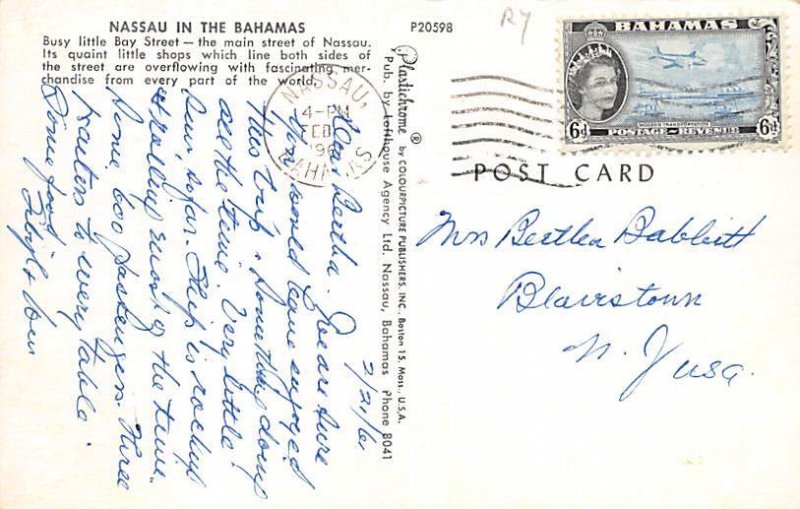 NASSAU IN THE BAHAMAS
Busy little Bay Street — the main street of Nassau.
Its quaint little shops which line both sides of
the street are overflowing with fascinating mer-
chandise from every part of the world.
P20598
R7
BAHAMAS
6d 6d
POSTAGE REVENUE
NASSAU,
14-PM
FEB
196
BAHAMAS
POST CARD
Plastichrome ® by COLOURPICTURE PUBLISHERS, INC., Boston 15, Mass., U.S.A.
Pub. by Lofthouse Agency Ltd. Nassau, Bahamas Phone 8041
2/21/61
Dear Bertha. Gee are sure
you would have enjoyed
this trip. Something doing
all the time. Very little
sun, so far. Ship is rocking
&rolling most of the time.
Some 600 passengers. Three
waiters to every table.
Some food
Mrs Bertha Babbitt
Blairstown
N. J usa.